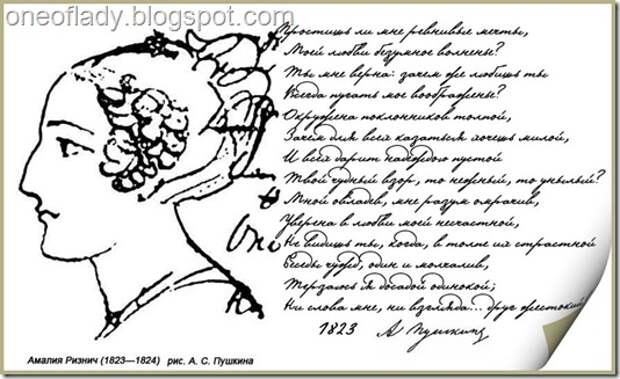 oneoflady.blogspot.com
Простишь ли мне ревнивые мечты,
Моей любви безумное волненье?
Ты мне верна: зачем же любишь ты
Всегда пугать мое воображенье?
Окружена поклонников толпой,
Зачем для всех казаться хочешь милой,
И всех дарит надеждою пустой
Твой чудный взор, то нежный, то унылый?
Мной овладев, мне разум омрачив,
Уверена в любви моей несчастной,
Не видишь ты, когда, в толпе их страстной
Беседы чужд, один и молчалив,
Терзаюсь я досадой одинокой;
Ни слова мне, ни взгляда... друг жестокий
1823 А Пушкин
Амалия Ризнич (1823—1824) рис. А. С. Пушкина